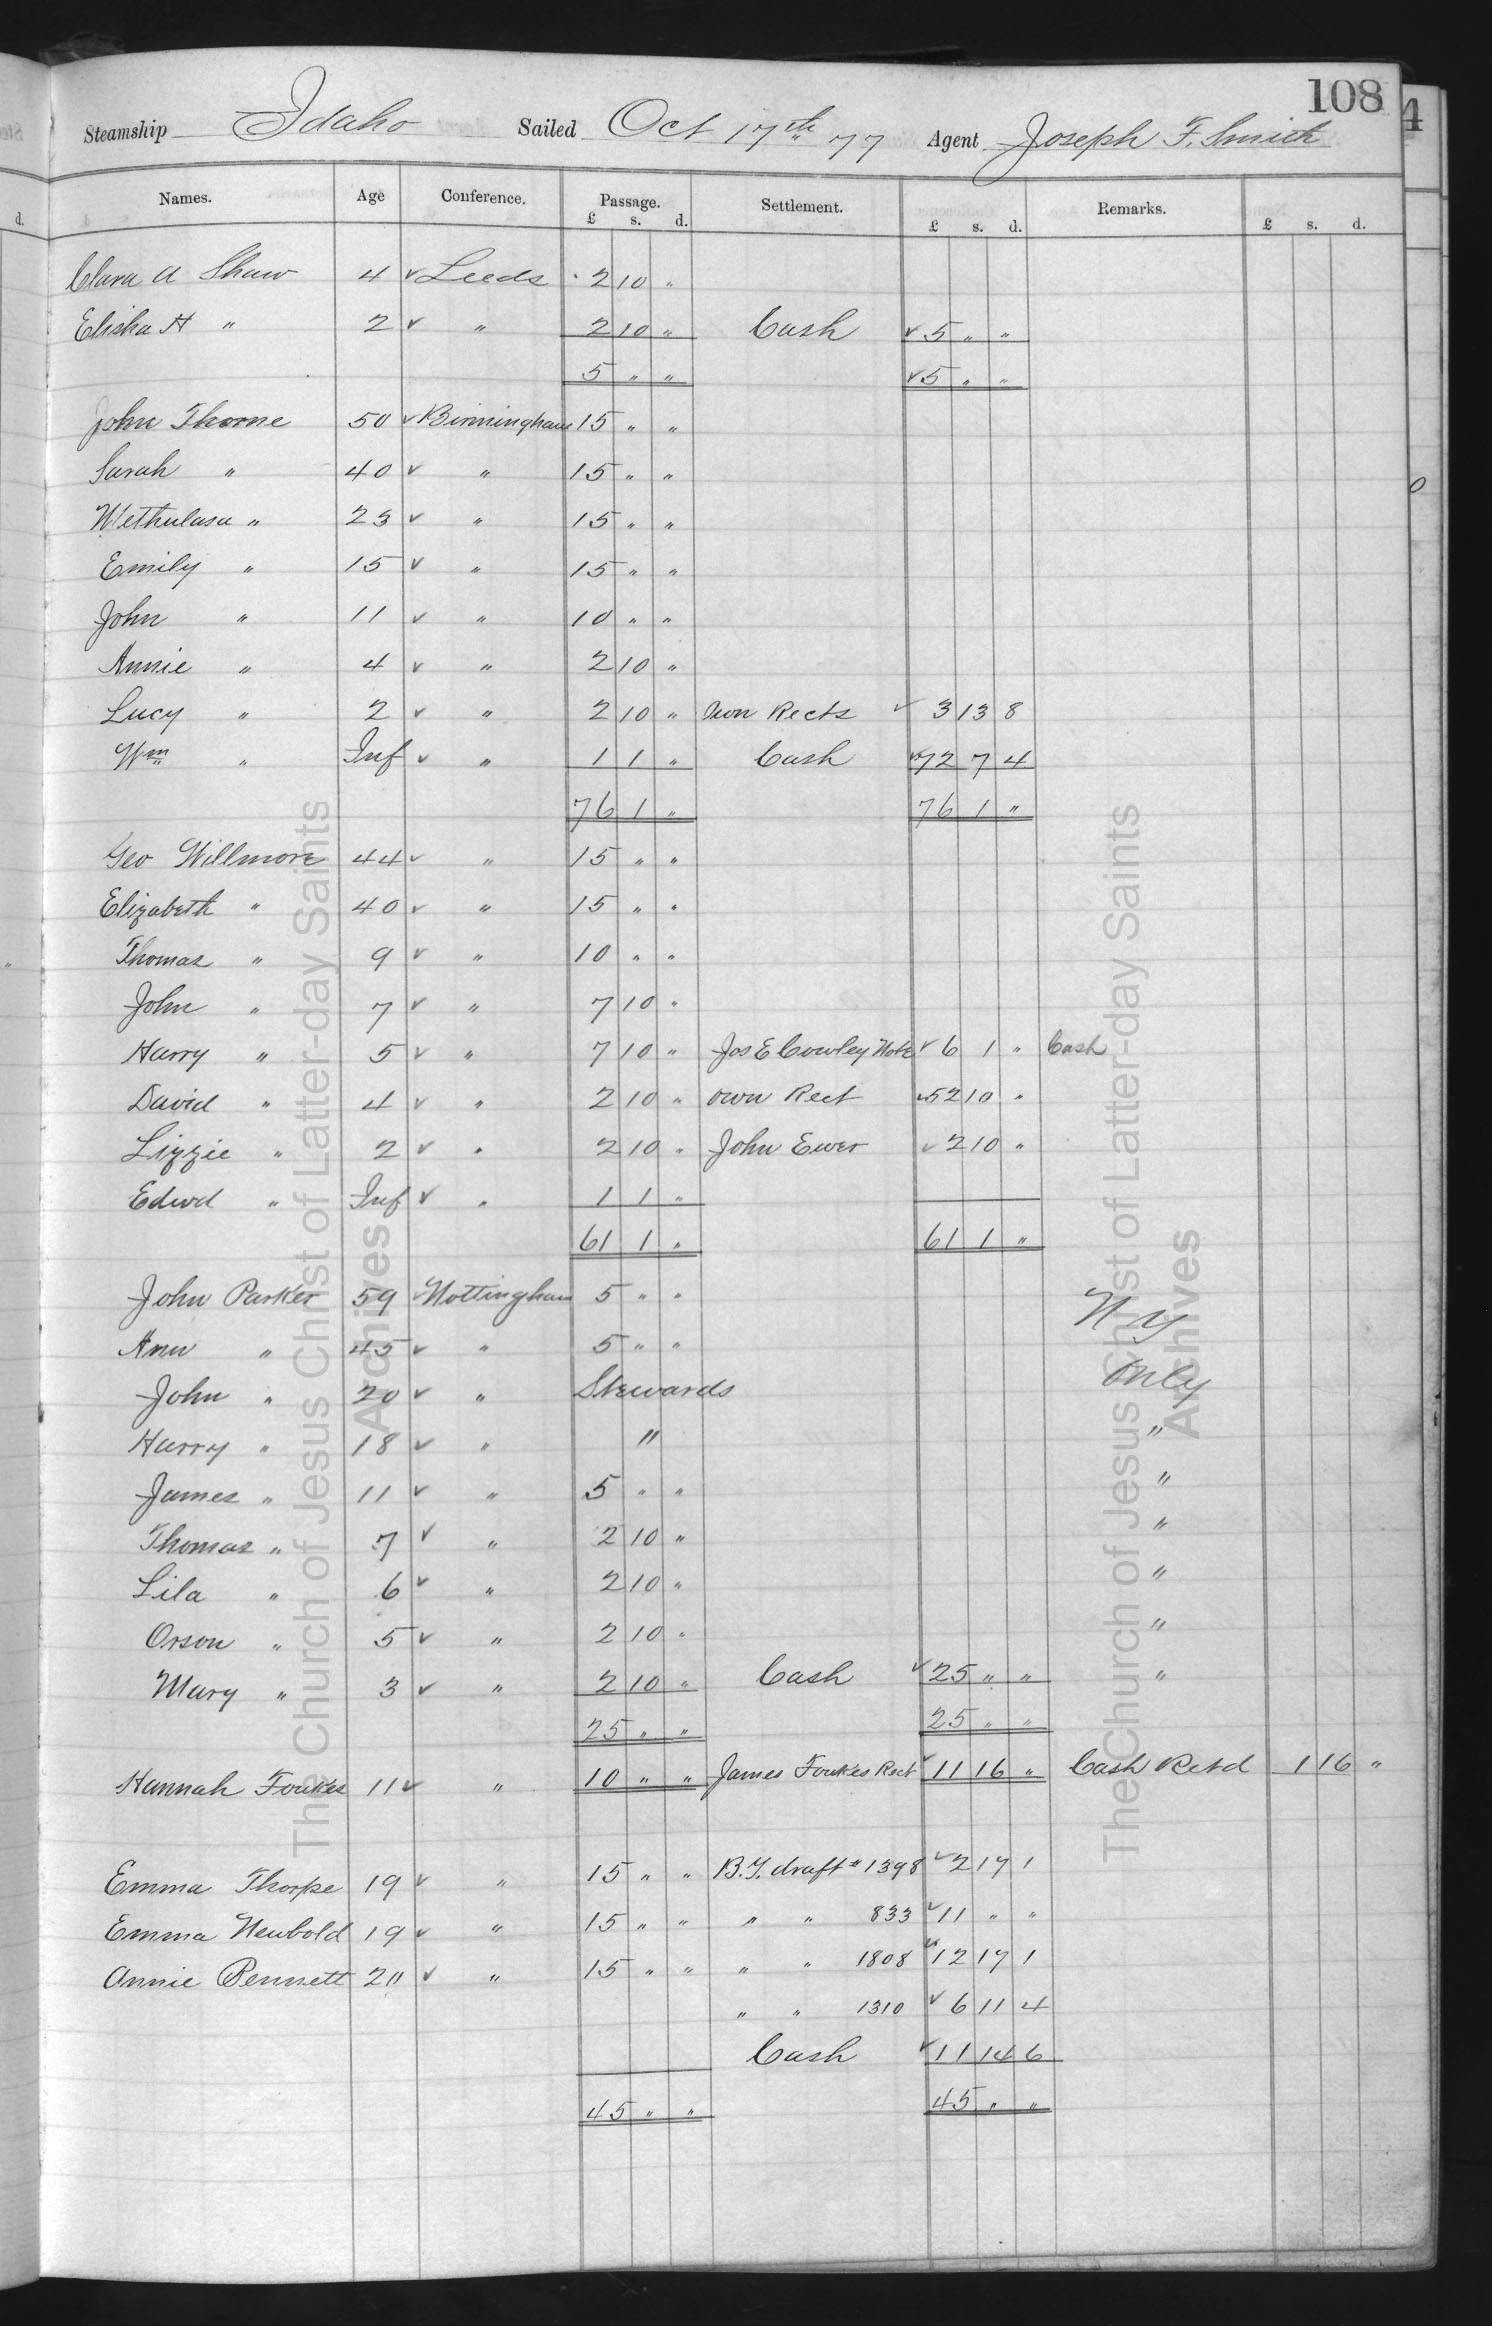 108
Steamship Idaho Sailed Oct 17th 77 Agent Joseph F. Smith
Names. Age Conference. Passage. Settlement. Remarks.
£ s. d. £ s. d. £ s. d.
Clara A Shaw 4 ✓ Leeds 2 10 "
Elisha H " 2 ✓ " 2 10 " Cash ✓ 5 " "
5 " " ✓ 5 " "
John Thorne 50 ✓ Birmingham 15 " "
Sarah " 40 ✓ " 15 " "
Methulasa " 23 ✓ " 15 " "
Emily " 15 ✓ " 15 " "
John " 11 ✓ " 10 " "
Annie " 4 ✓ " 2 10 "
Lucy " 2 ✓ " 2 10 " Own Rects ✓ 3 13 8
Wm " Inf ✓ " 1 1 " Cash ✓ 72 7 4
76 1 " 76 1 "
Geo Willmore 44 ✓ " 15 " "
Elizabeth " 40 ✓ " 15 " "
Thomas " 9 ✓ " 10 " "
John " 7 ✓ " 7 10 "
Harry " 5 ✓ " 7 10 " Jos E Cowley Note ✓ 6 1 " Cash
David " 4 ✓ " 2 10 " own Rect ✓ 52 10 "
Lizzie " 2 ✓ " 2 10 " John Ewer ✓ 2 10 "
Edwd " Inf ✓ " 1 1 "
61 1 " 61 1 "
John Parker 59 ✓ Nottingham 5 " " N Y
Ann " 45 ✓ " 5 " "
John " 20 ✓ " Stewards only
Harry " 18 ✓ " " "
James " 11 ✓ " 5 " " "
Thomas " 7 ✓ " 2 10 " "
Lila " 6 ✓ " 2 10 " "
Orson " 5 ✓ " 2 10 " "
Mary " 3 ✓ " 2 10 " Cash ✓ 25 " " "
25 " " 25 " "
Hannah Foukes 11 ✓ " 10 " " James Foukes Rect ✓ 11 16 " Cash Retd 1 16 "
Emma Thorpe 19 ✓ " 15 " " B.Y. draft # 1398 ✓ 2 17 1
Emma Newbold 19 ✓ " 15 " " " " 833 ✓ 11 " "
Annie Pennett 20 ✓ " 15 " " " " 1808 ✓ 12 17 1
" " 1310 ✓ 6 11 4
Cash ✓ 11 14 6
45 " " 45 " "
The Church of Jesus Christ of Latter-day Saints
Archives
The Church of Jesus Christ of Latter-day Saints
Archives